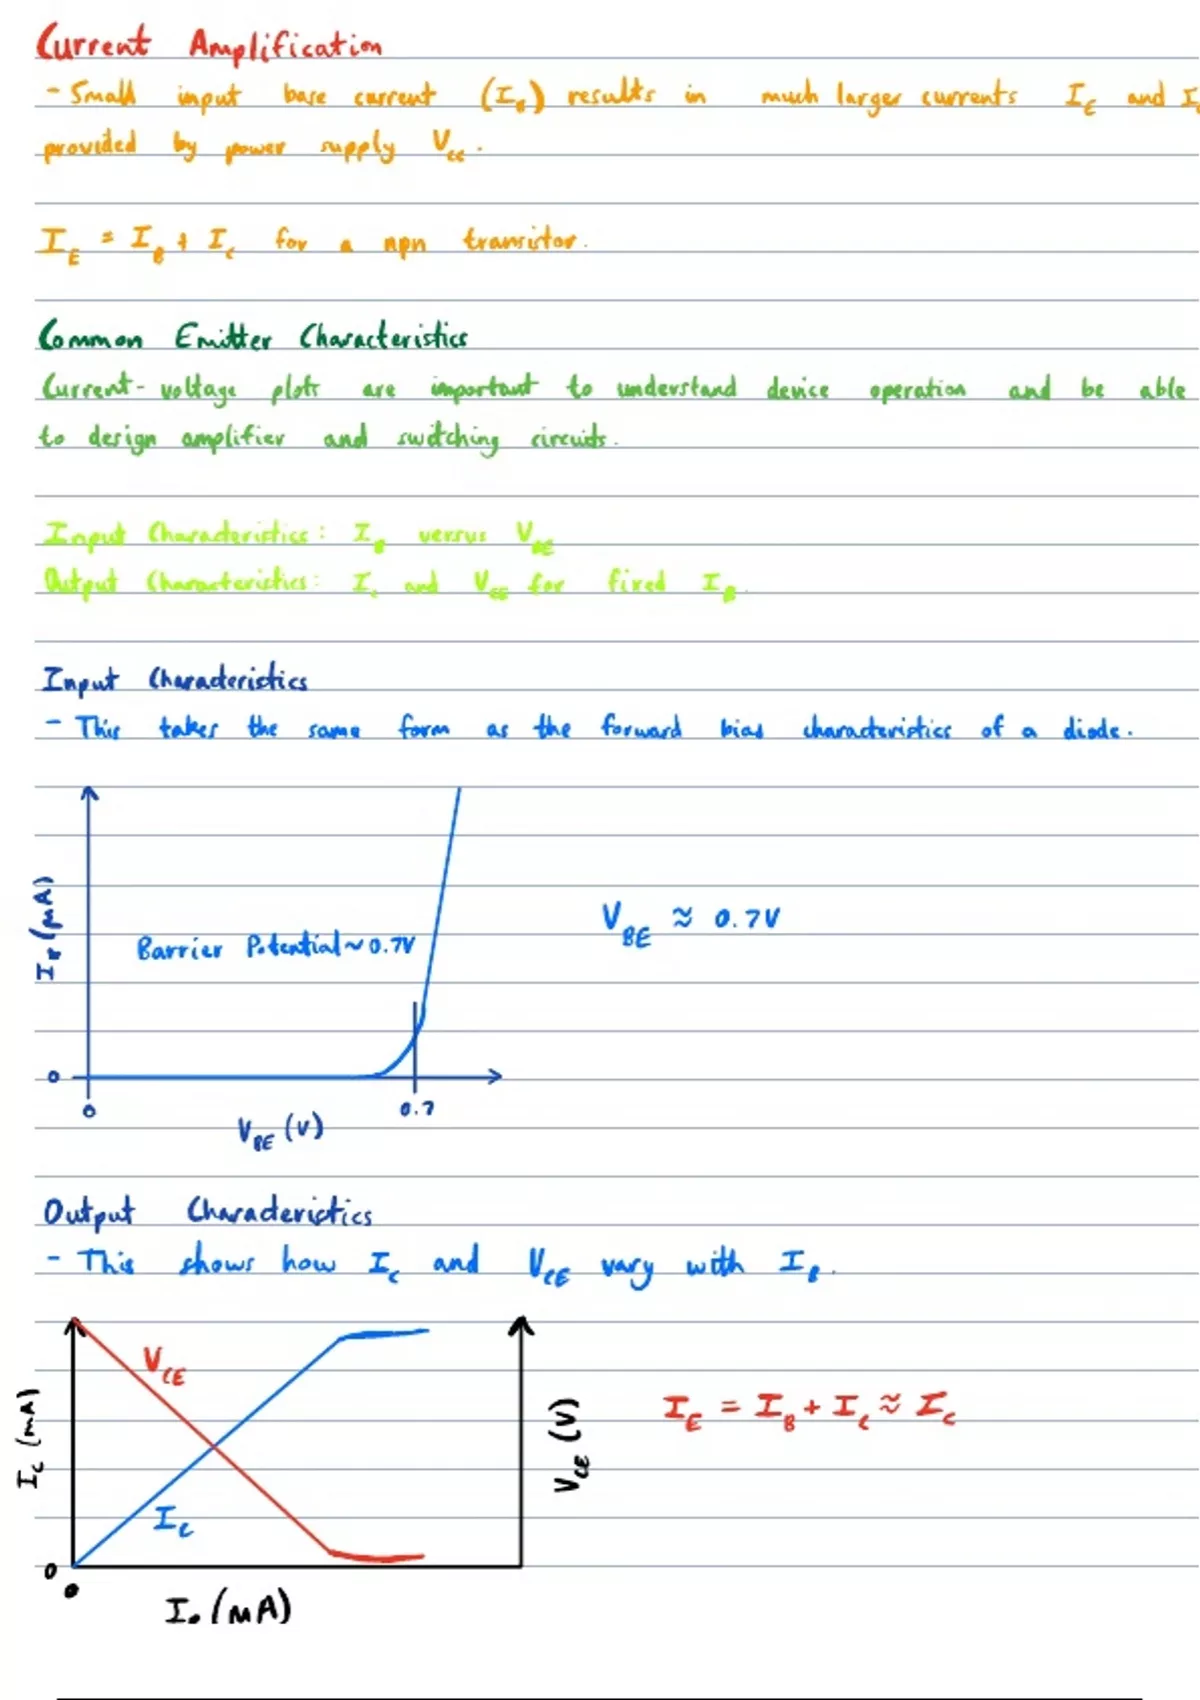 Current Amplification
- Small input base current (I_B) results in much larger currents I_E and I
provided by power supply V_CC.
I_E = I_B + I_C for a npn transistor.
Common Emitter Characteristics
Current-voltage plots are important to understand device operation and be able
to design amplifier and switching circuits.
Input Characteristics: I_B versus V_BE
Output Characteristics: I_C and V_CE for fixed I_B.
Input Characteristics
- This takes the same form as the forward bias characteristics of a diode.
I_B (μA)
Barrier Potential ~ 0.7V
V_BE ≈ 0.7V
0
0
0.7
V_BE (V)
Output Characteristics
- This shows how I_C and V_CE vary with I_B.
V_CE
I_C (mA)
V_CE (V)
I_E = I_B + I_C ≈ I_C
I_C
0
0
I_B (μA)